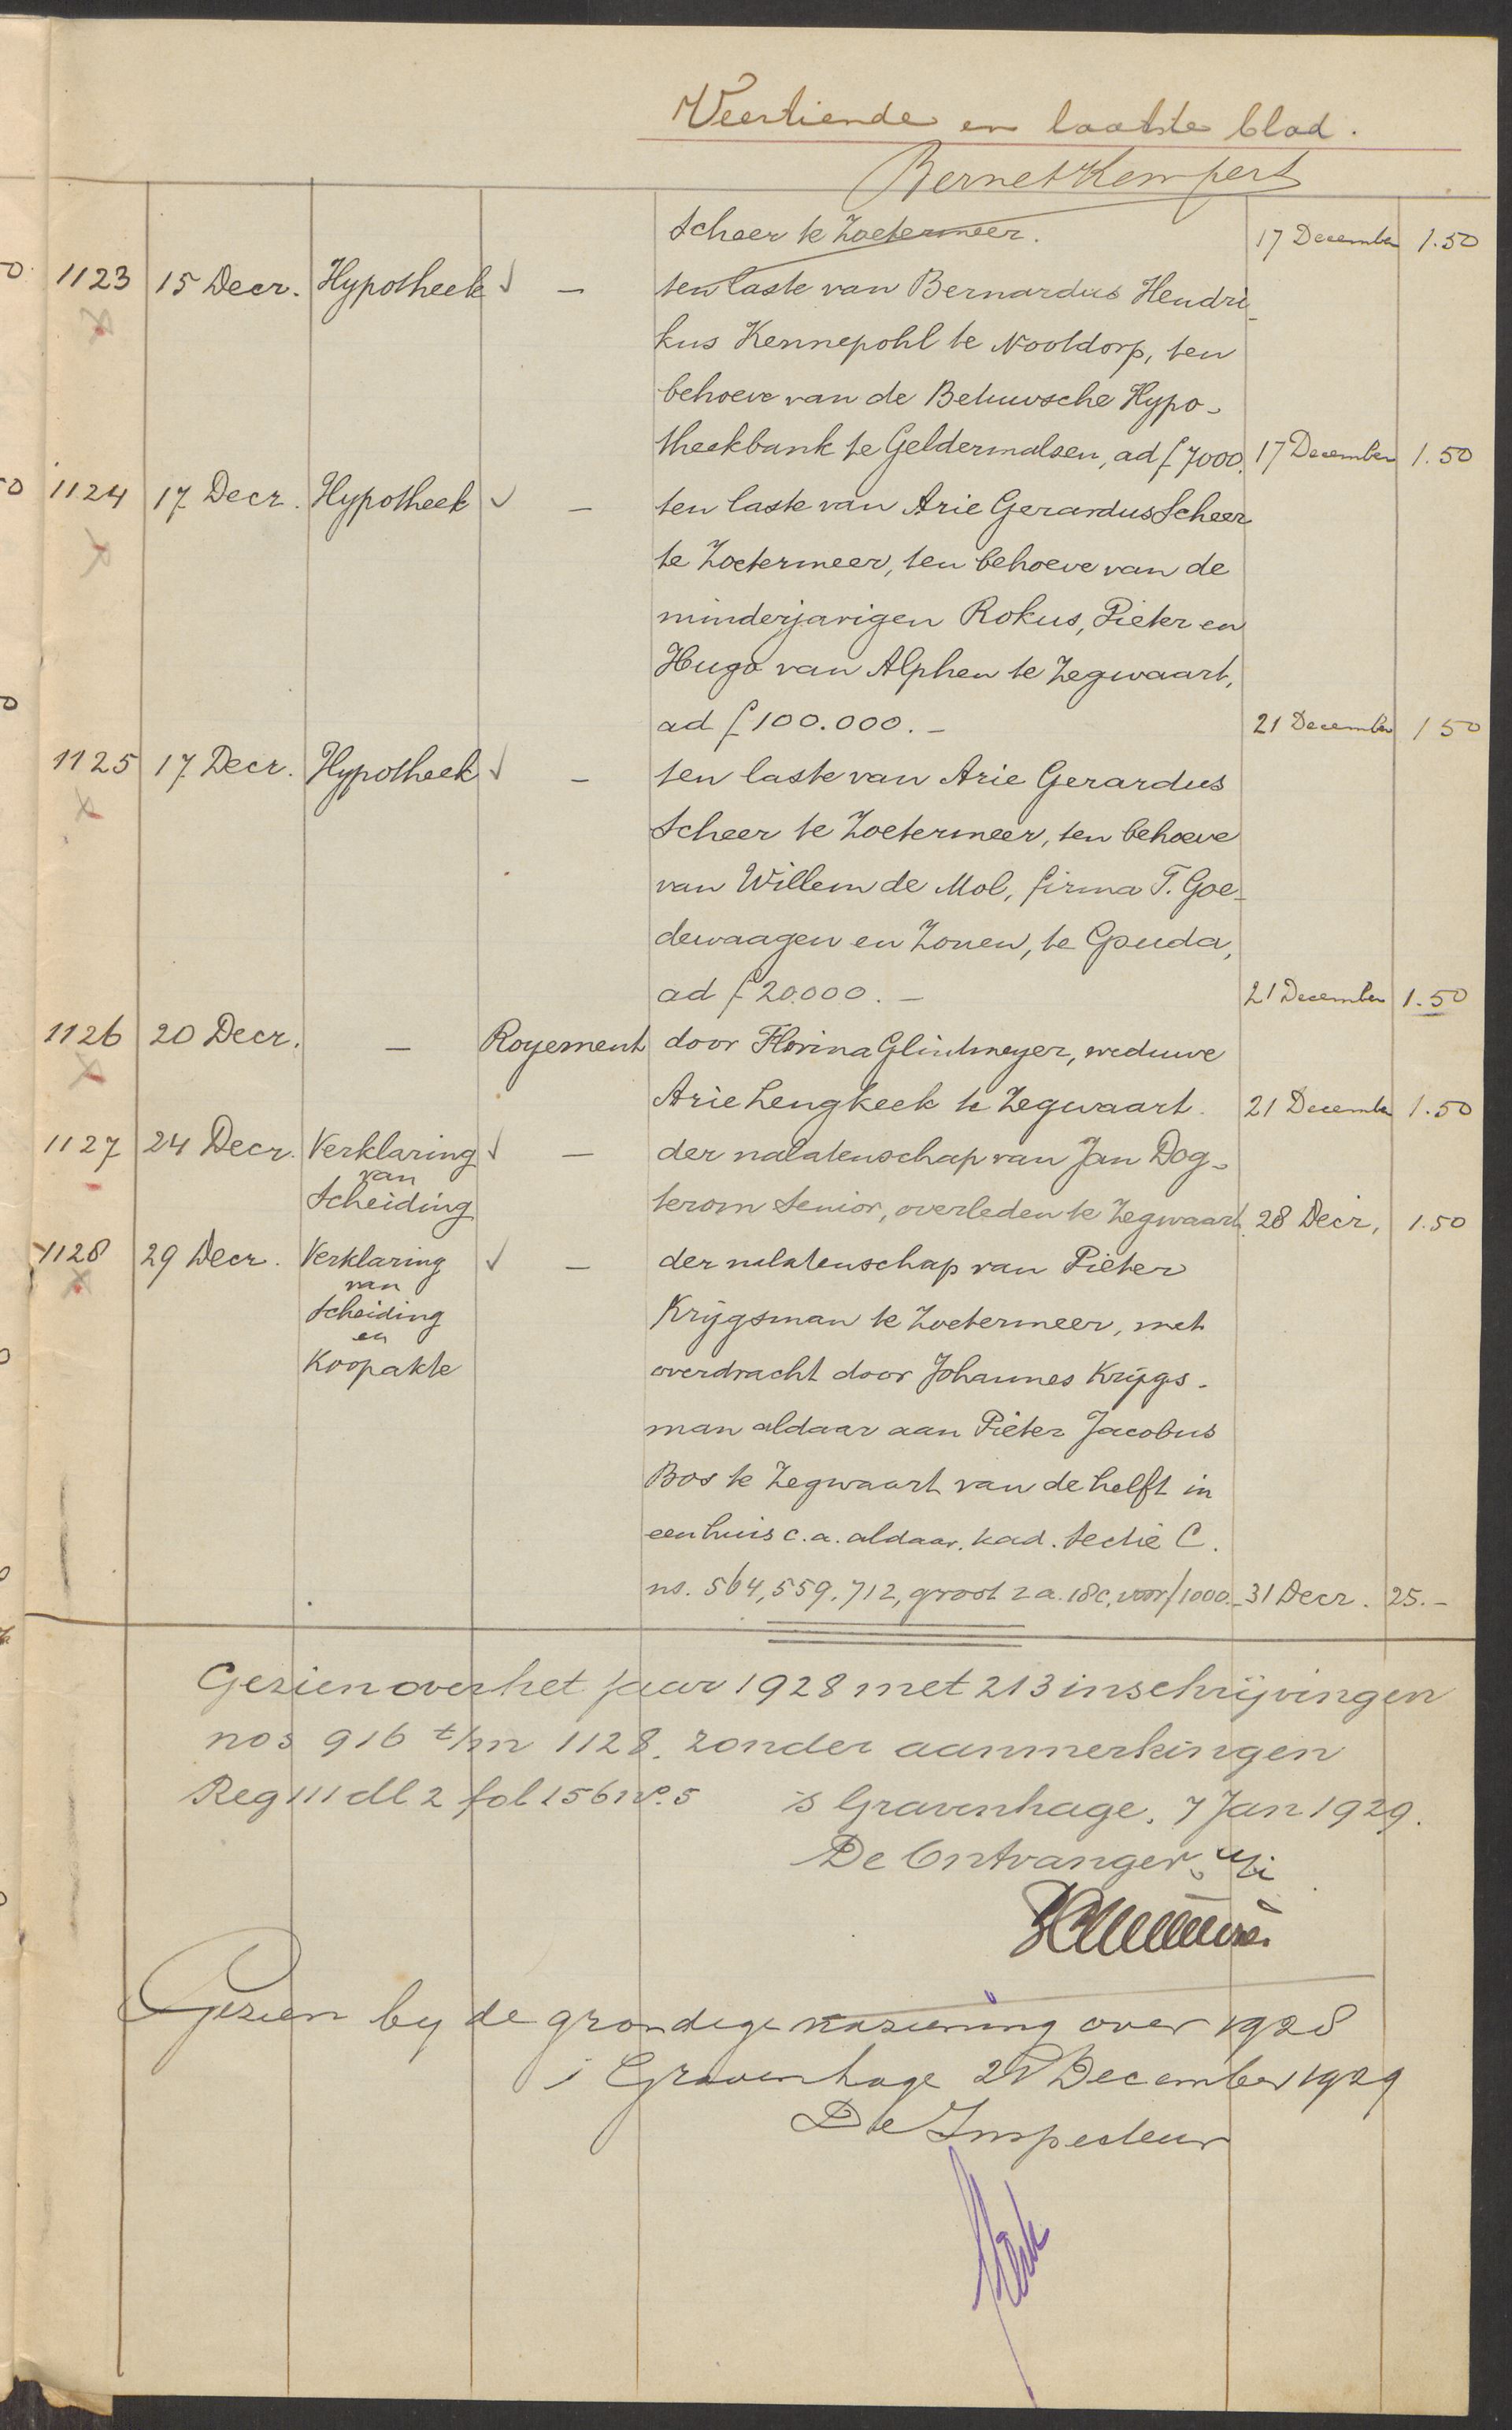 Veertiende en laatste blad.
Bernet Kempers
Scheer te Zoetermeer. 17 December 1.50
1123 15 Decr. Hypotheek √ — ten laste van Bernardus Hendri-
kus Kennepohl te Nootdorp, ten
behoeve van de Betuwsche Hypo-
theekbank te Geldermalsen, ad ƒ 7000. 17 December 1.50
1124 17 Decr. Hypotheek √ — ten laste van Arie Gerardus Scheer
te Zoetermeer, ten behoeve van de
minderjarigen Rokus, Pieter en
Hugo van Alphen te Zegwaart,
ad ƒ 100.000.- 21 December 1 50
1125 17 Decr. Hypotheek √ — ten laste van Arie Gerardus
Scheer te Zoetermeer, ten behoeve
van Willem de Mol, firma T. Goe-
dewaagen en Zonen, te Gouda,
ad ƒ 20.000.- 21 December 1.50
1126 20 Decr. — Royement door Florina Glintmeyer, weduwe
Arie Lengkeek te Zegwaart. 21 December 1.50
1127 24 Decr. Verklaring √ — der nalatenschap van Jan Dog-
van
Scheiding terom Senior, overleden te Zegwaart. 28 Decr. 1.50
1128 29 Decr. Verklaring √ — der nalatenschap van Pieter
van
Scheiding Krijgsman te Zoetermeer, met
en
Koopakte overdracht door Johannes Krijgs-
man aldaar aan Pieter Jacobus
Bos te Zegwaart van de helft in
een huis c.a. aldaar. kad. sectie C.
ns. 564, 559. 712, groot 2 a. 18 c, voor ƒ 1000.- 31 Decr. 25.-
Gezien over het jaar 1928 met 213 inschrijvingen
nos 916 t/m 1128. zonder aanmerkingen
Reg III dl 2 fol 156 no. 5 's Gravenhage, 7 Jan 1929.
De Ontvanger
Gezien by de grondige naziening over 1928
's Gravenhage December 1929
De Inspecteur